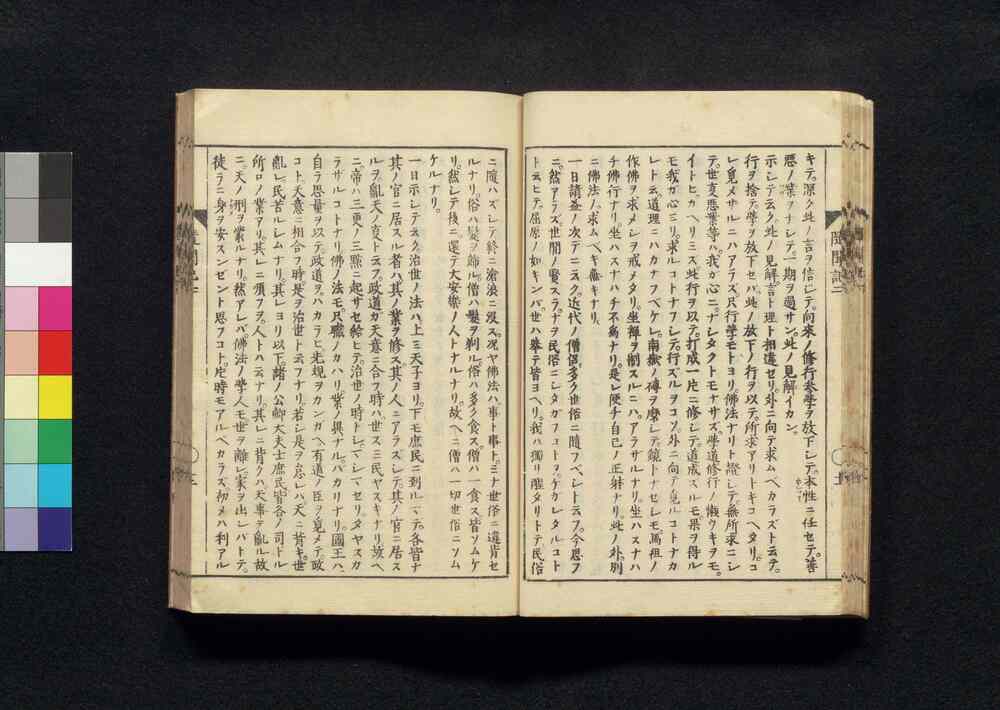 隨聞記三
キテ。深ク此ノ言ヲ信レテ。向來ノ修行參學ヲ放下シテ。本性ニ任セテ。善
惡ノ業ヲナレテ。一期ヲ過サン。此ノ見解イカン。
示レテ云ク此ノ見解。言ト理ト相違セリ。外ニ向テ求ムベカラズト云テ。
行ヲ捨テ。學ヲ放下セバ。此ノ放下ノ行ヲ以テ。所求アリトキコヘタリ。コ
レ覓メザルニハアラズ。只行學モトヨリ佛法ナリト證レテ。無所求ニシ
テ。世事惡業等ハ。我ガ心ニナレタクトモナサズ。學道修行ノ懶クキヲモ。
イトヒカヘリミズ。此行ヲ以テ。打成一片ニ修レテ。道成スルモ果ヲ得ル
モ。我ガ心ヨリ求ルコトナフレテ。行ズルヲコソ。外ニ向テ覓ルコトナカ
レト云道理ニハカナフベケレ。南嶽ノ磚ヲ磨レテ鏡トナセレモ。馬祖ノ
作佛ヲ求メシヲ戒メタリ。坐禪ヲ制スルニハアラザルナリ。坐ハスナハ
チ佛行ナリ。坐ハスナハチ不爲ナリ。是レ便チ自己ノ正躰ナリ。此ノ外別
ニ佛法ノ求ムベキ無キナリ。
一日請益ノ次デニ云ク。近代ノ僧侶。多ク世俗ニ隨フベレト云フ。今思フ
ニ。然アラズ。世間ノ賢スラナヲ民俗ニシタガフコトヲケガレタルコト
ト云ヒテ。屈原ノ如キンバ。世ハ擧テ皆ヨヘリ。我ハ獨リ醒タリトテ民俗
ニ隨ハズレテ。終ニ滄浪ニ沒ス。况ヤ佛法ハ。事ト事ト。ミナ世俗ニ違背セ
ルナリ。俗ハ髮ヲ飾ル。僧ハ髮ヲ剃ル。俗ハ多ク食ス。僧ハ一食ス。皆ソムケ
リ。然レテ後ニ還テ大安樂ノ人トナルナリ。故ヘニ僧ハ一切世俗ニソム
ケルナリ。
一日示レテ云ク。治世ノ法ハ。上ミ天子ヨリ。下モ庶民ニ到ルマデ。各皆ナ
其ノ官ニ居スル者ハ。其ノ業ヲ修ス。其ノ人ニアラズレテ。其ノ官ニ居ス
ルヲ。亂天ノ事ト云フ。政道ガ天意ニ合フ時ハ。世スミ民ヤスキナリ。故ヘ
ニ。帝ハ三更ノ三點ニ起サセ給ヒテ。治世ノ時トレマレマセリ。タヤスカ
ラザルコトナリ。佛ノ法モ。只職ノカハリ。業ノ異ナルバカリナリ。國王ハ。
自ラ思量ヲ以テ。政道ヲハカラヒ。先規ヲカンガヘ。有道ノ臣ヲ覓メテ。政
コト。天意ニ相合フ時。是ヲ治世ト云フナリ。若シ是ヲ怠レバ。天ニ背キ。世
亂レ。民苦ルレムナリ。其レヨリ以下。諸ノ公卿。大夫。士。庶民。皆各ノ司ドル
所ロノ業アリ。其レニ順フヲ。人トハ云ナリ。其レニ背クハ。天事ヲ亂ル故
ニ。天ノ刑ヲ蒙ルナリ。然アレバ。佛法ノ學人モ。世ヲ離レ。家ヲ出レバトテ。
徒ラニ身ヲ安スンゼント思フコト。片時モアルベカラズ。初メハ利アル